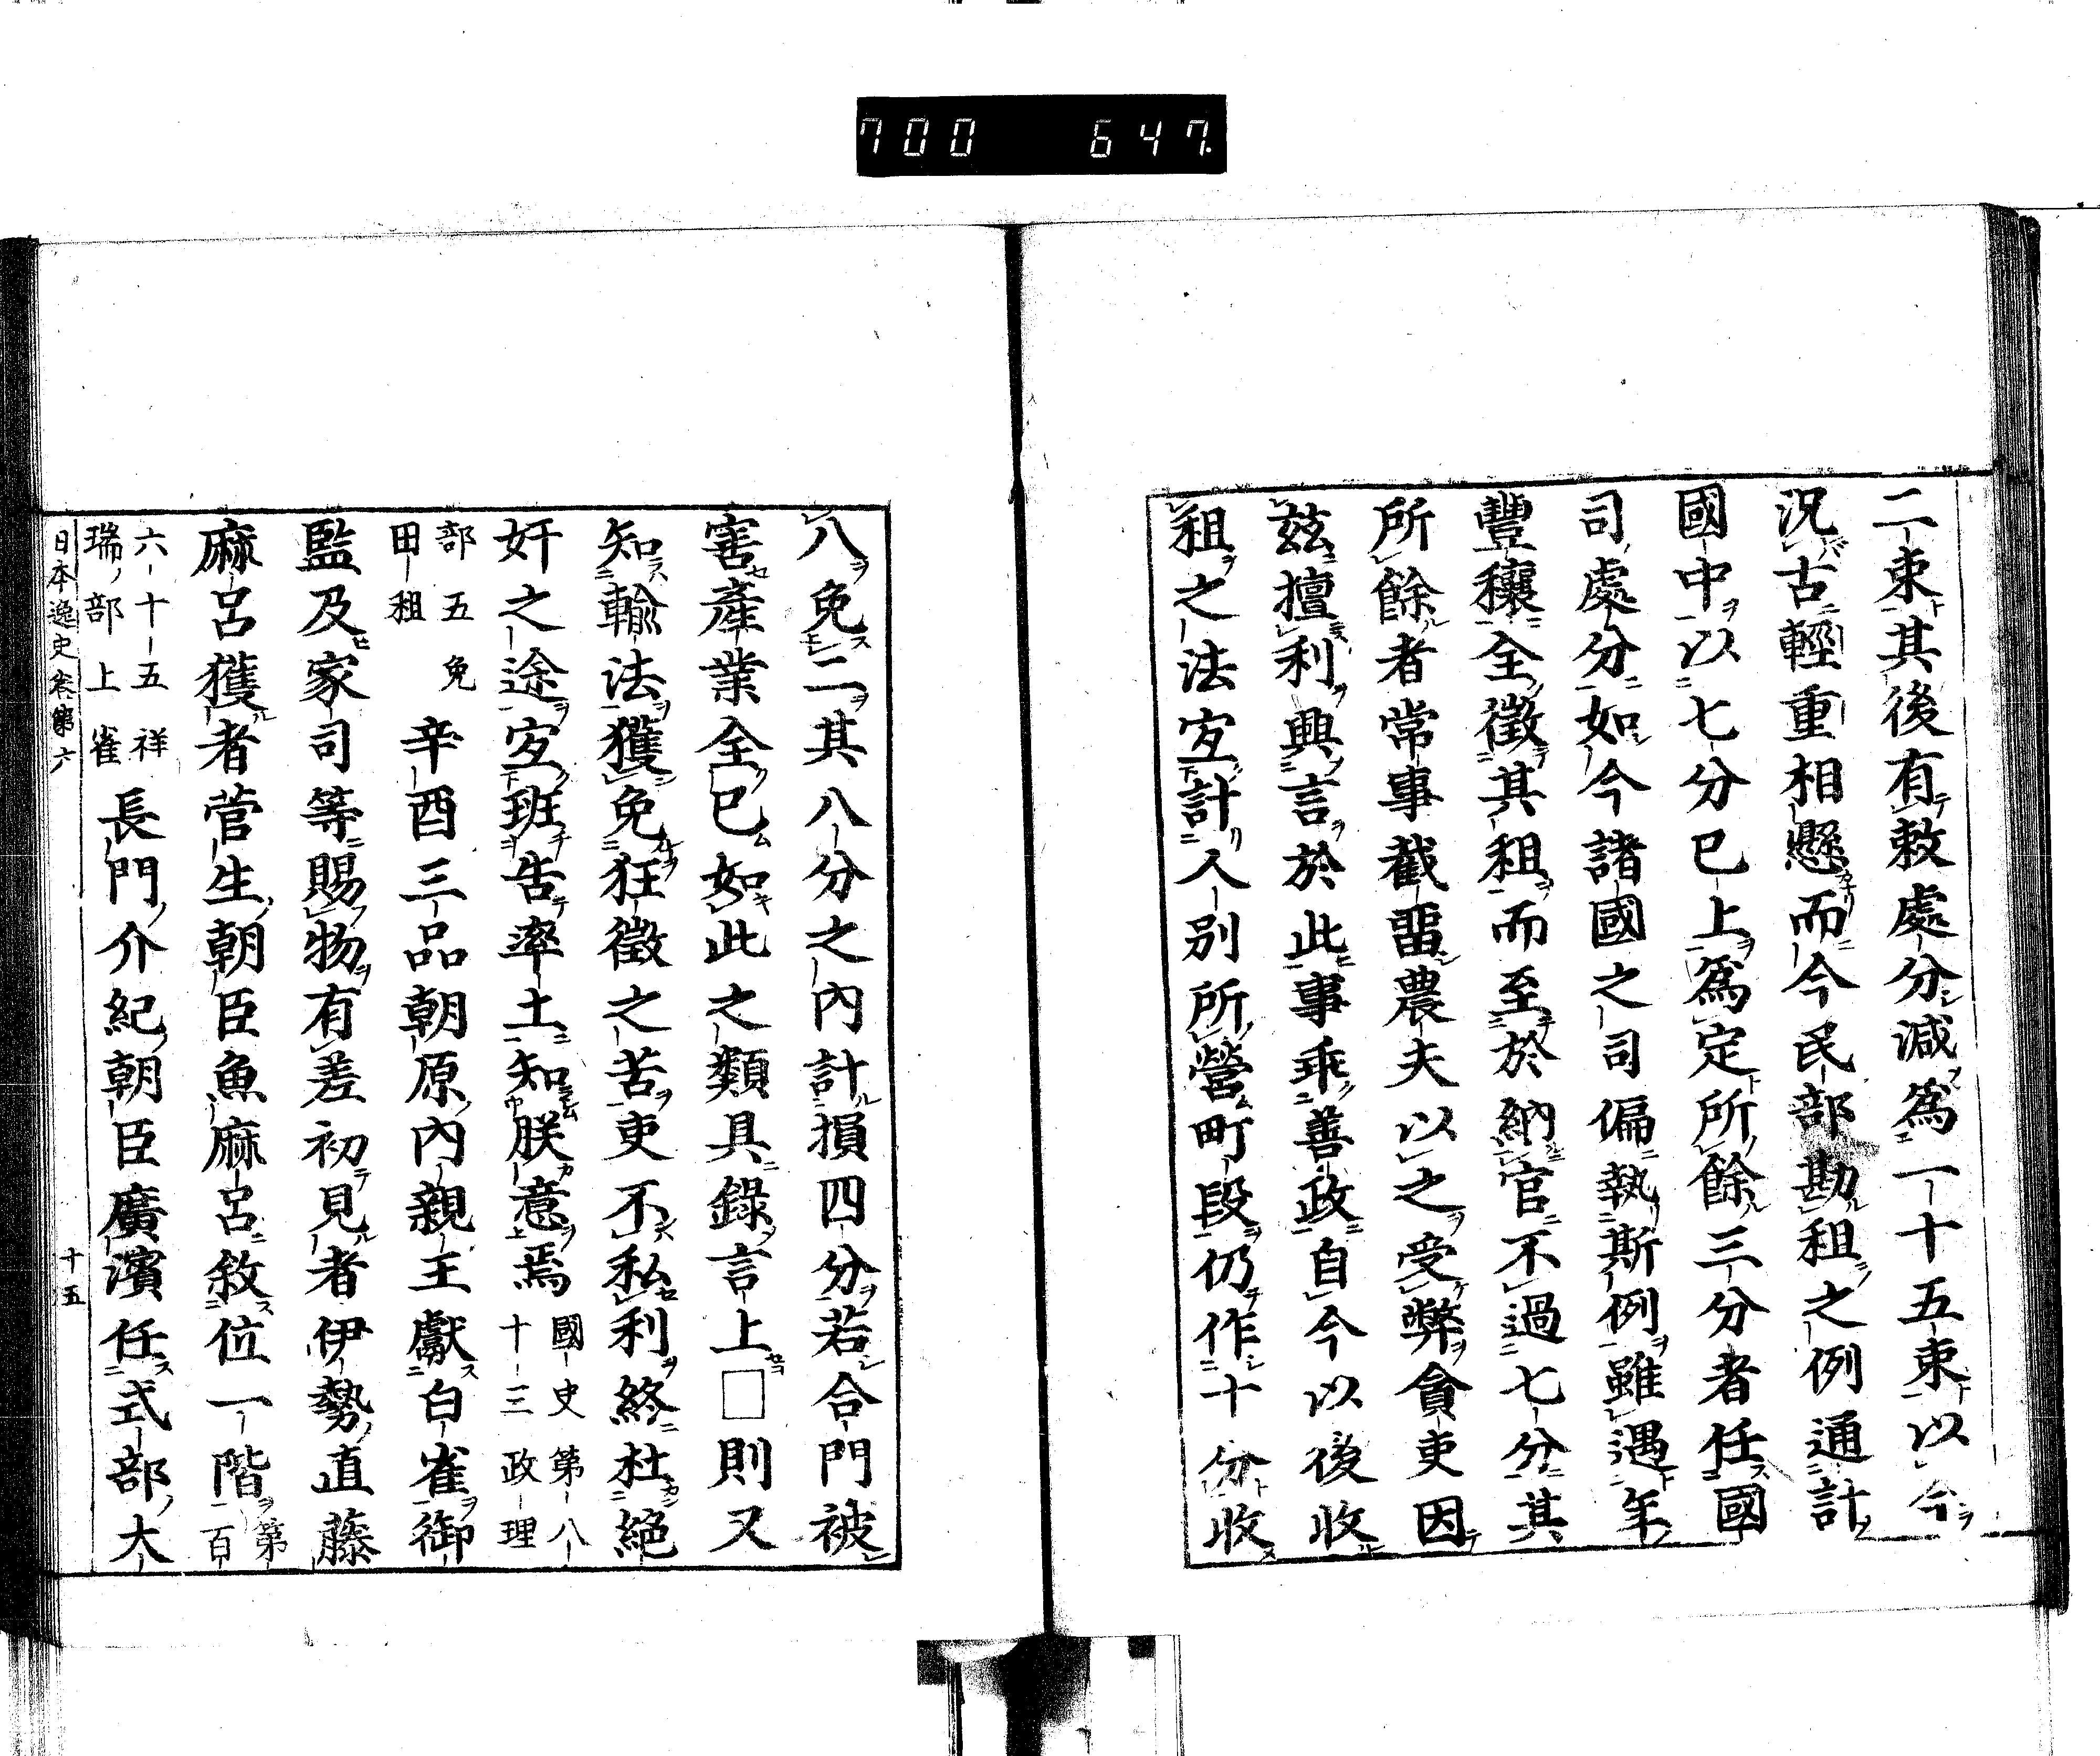 700 647.
二束其後有敕處分減爲一十五束以今
況古輕重相懸而今民部勘租之例通計
國中以七分已上爲定所餘三分者任國
司處分如今諸國之司偏執斯例雖遇年
豐穰全徵其租而至於納官不過七分其
所餘者常事截畱農夫以之受弊貪吏因
茲擅利興言於此事乖善政自今以後收
租之法宐計人別所營町段仍作十分收
八免二其八分之內計損四分若合門被
害產業全已如此之類具錄言上□則又
知輸法獲免狂徵之苦吏不私利終杜絕
奸之途宐班告率土知朕意焉 國史第八
十三政理
部五免
田租 辛酉三品朝原內親王獻白雀御
監及家司等賜物有差初見者伊勢直藤
麻呂獲者菅生朝臣魚麻呂敘位一階 第一百
六十五祥
瑞部上雀 長門介紀朝臣廣濱任式部大
日本逸史卷第六 十五